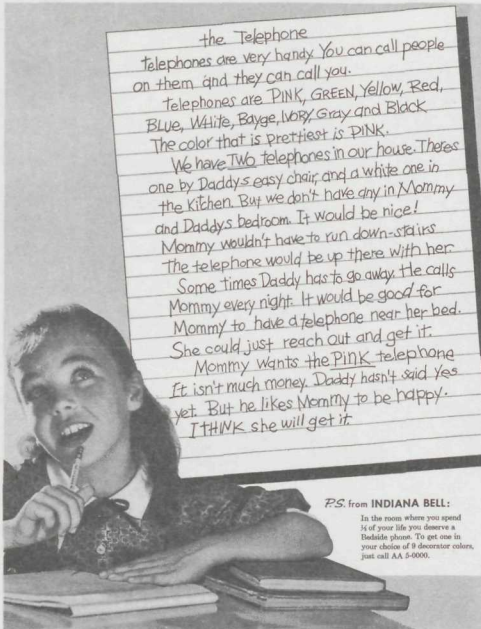 the Telephone
telephones are very handy. You can call people
on them and they can call you.
telephones are PINK, GREEN, Yellow, Red,
BLUE, WHite, Bayge, IVORY, Gray and Black
The color that is Prettiest is PINK.
We have TWO telephones in our house. Theres
one by Daddys easy chair, and a white one in
the Kitchen. But we don't have any in Mommy
and Daddys bedroom. It would be nice!
Mommy wouldn't have to run down-stairs
The telephone would be up there with her.
Some times Daddy has to go away. He calls
Mommy every night. It would be good for
Mommy to have a telephone near her bed.
She could just reach out and get it.
Mommy wants the PINK telephone
It isn't much money. Daddy hasn't said Yes
yet. But he likes Mommy to be happy.
I THINK she will get it.
P.S. from INDIANA BELL:
In the room where you spend
⅓ of your life you deserve a
Bedside phone. To get one in
your choice of 9 decorator colors,
just call AA 5-0000.